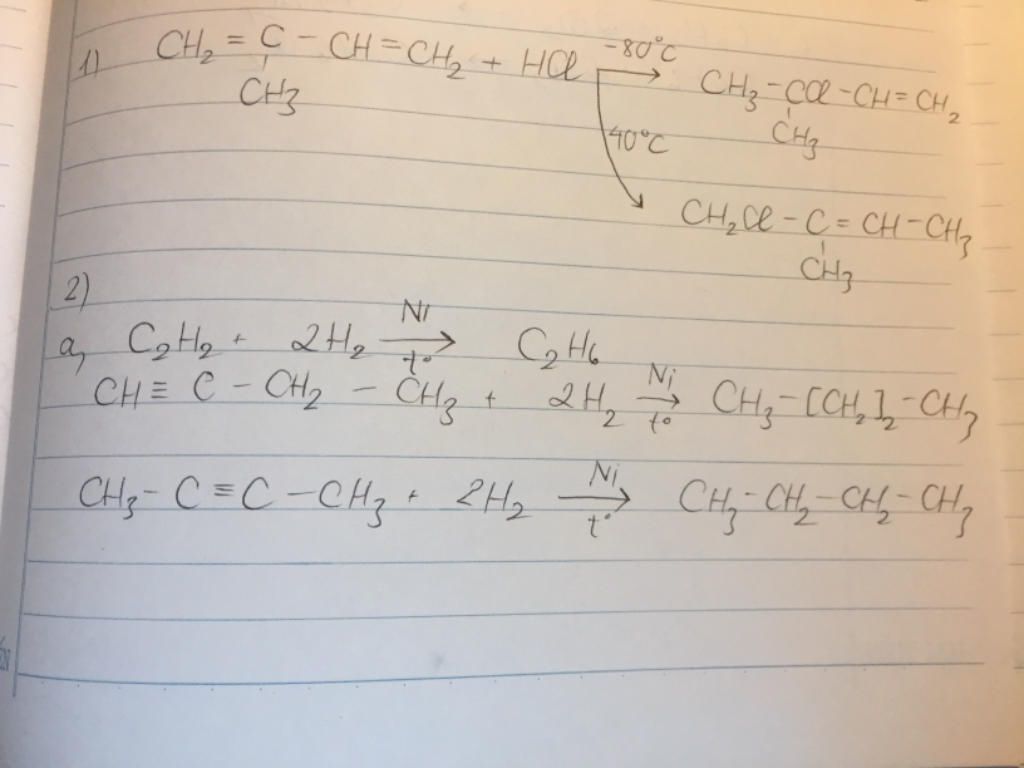 1) CH₂ = C - CH = CH₂ + HCl -80°C CH₃ - CCl - CH = CH₂
CH₃ CH₃
40°C
CH₂Cl - C = CH - CH₃
CH₃
2)
a, C₂H₂ + 2H₂ Ni → t° C₂H₆
CH ≡ C - CH₂ - CH₃ + 2H₂ Ni → t° CH₃ - [CH₂]₂ - CH₃
CH₃ - C ≡ C - CH₃ + 2H₂ Ni → t° CH₃ - CH₂ - CH₂ - CH₃